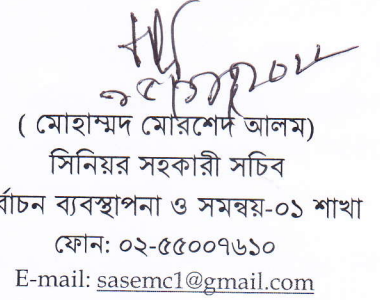 ( মোহাম্মদ মোরশেদ আলম)
সিনিয়র সহকারী সচিব
র্বাচন ব্যবস্থাপনা ও সমন্বয়-০১ শাখা
ফোন: ০২-৫৫০০৭৬১০
E-mail: sasemc1@gmail.com